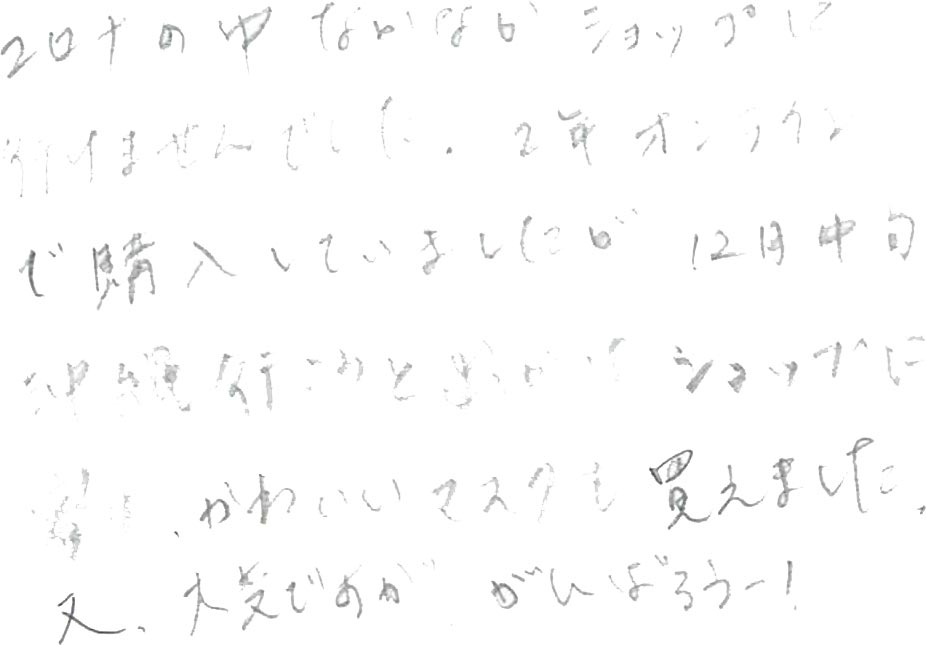 コロナの中 なかなか ショップに
行けませんでした. 2年 オンライン
で購入していましたが 12月中旬
沖縄 行 ショップに
、かわいいマスクも 買えました.
又、大変ですが がんばろうー!